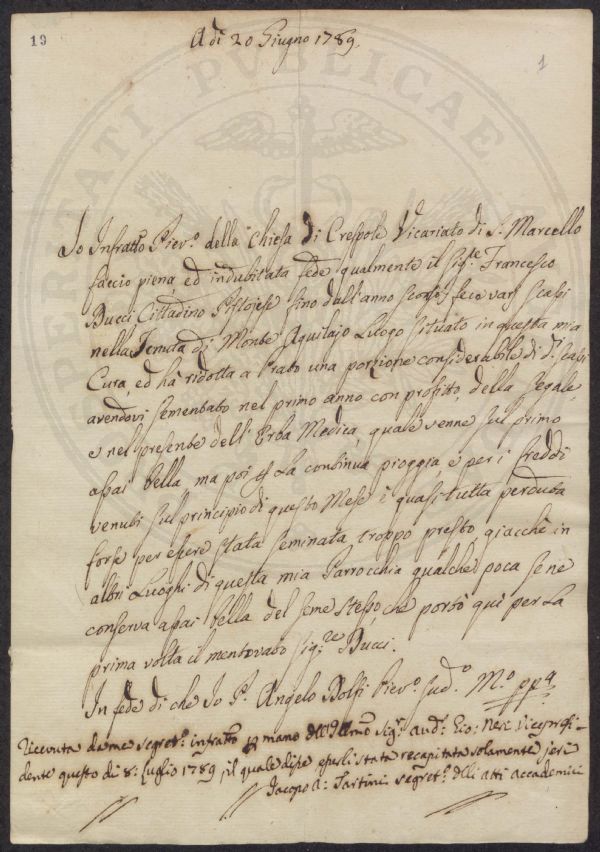 19
A dì 20 Giugno 1789.
1
PROSPERITATI PUBLICAE
Io Infratto Piev.o della Chiesa di Crespole Vicariato di S. Marcello
faccio piena, ed indubitata fede qualmente il Sig.re Francesco
Bucci Cittadino Pistojese fino dall'anno scorso fece varj scassi
nella Tenuta di Monte Aquilajo Luogo situato in questa mia
Cura, ed hà ridotta a Prato una porzione considerabile di d.i scassi
avendovi sementato nel primo anno con profitto, della Segale,
e nel presente dell'Erba Medica, quale venne sul primo
assai bella ma poi p la continua pioggia e per i freddi
venuti sul principio di questo Mese è quasi tutta perduta
forse per essere stata seminata troppo presto, giacchè in
altri Luoghi di questa mia Parrocchia qualche poca se ne
conserva assai bella del seme stesso, che portò quì per la
prima volta il mentovato Sig.re Bucci.
In fede di che Io P. Angelo Bolsi Piev.o sud.o M.o pp.a
Ricevuta da me segret.o infratto p mano dell'Illmo Sig.r Aud.r Gio: Neri Vicepresi-
dente questo dì 8: Luglio 1789, il quale disse essersi stata recapitata solamente jeri
Jacopo A: Tartini segret.o degli atti accademici